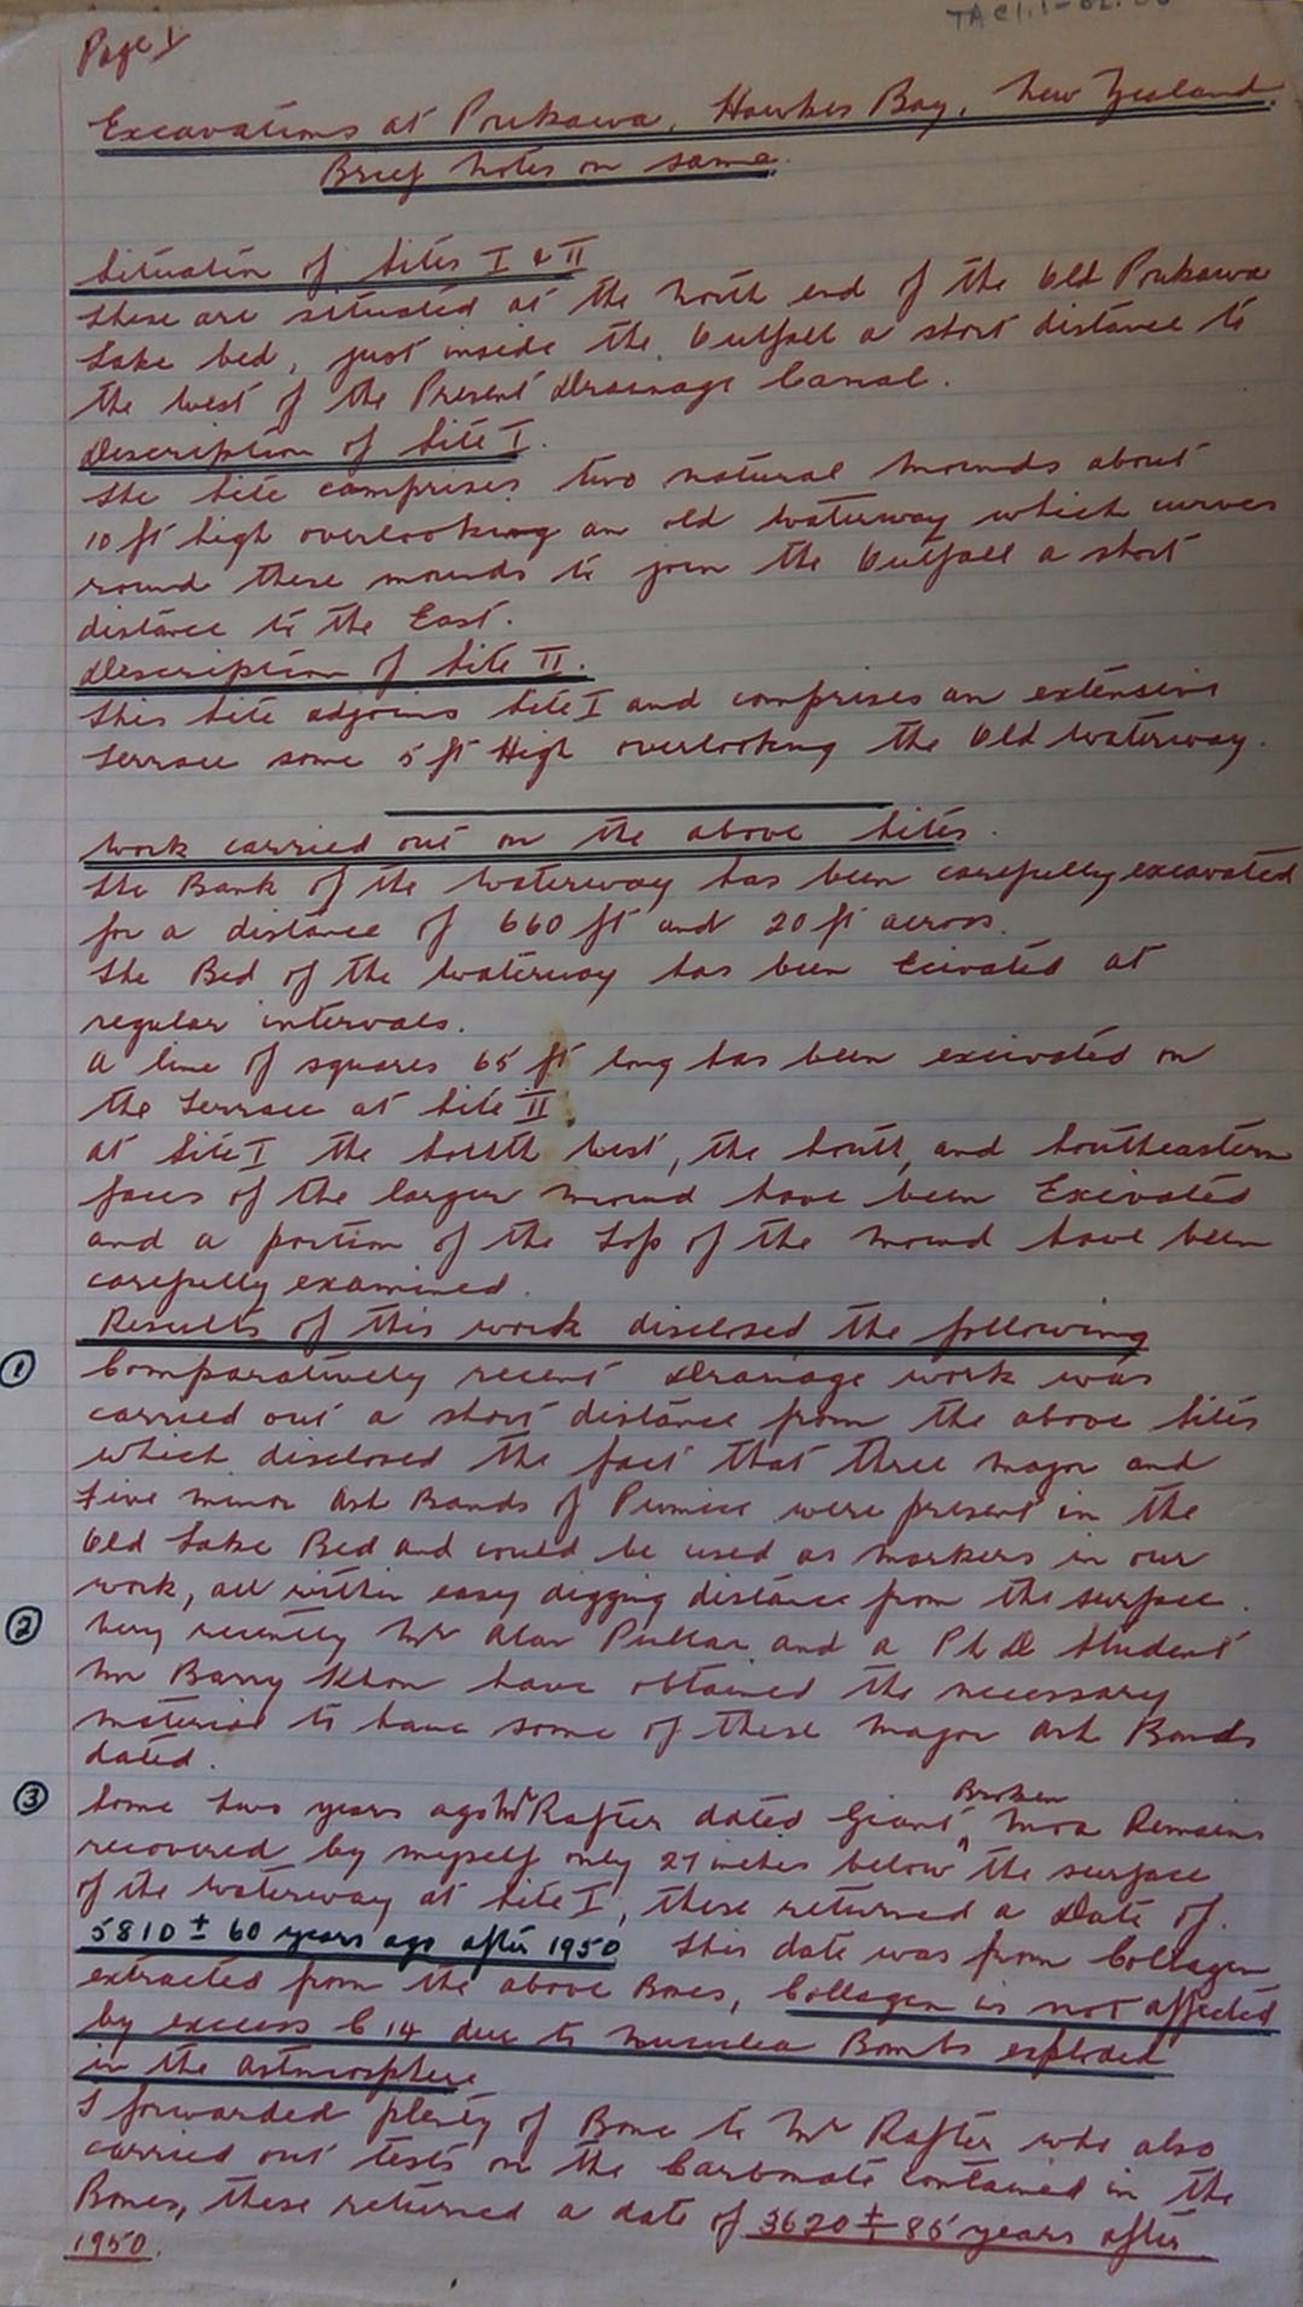 TAC1.1-02.
Page I
Excavations at Poukawa, Hawkes Bay, New Zealand.
Brief Notes on same.
Situation of Sites I & II
These are situated at the North end of the Old Poukawa
Lake bed, just inside the Outfall a short distance to
the West of the Present Drainage Canal.
Description of Site I.
The Site comprises two natural Mounds about
10 ft high overlooking an old Waterway which curves
round these mounds to join the Outfall a short
distance to the East.
Description of Site II.
This Site adjoins Site I and comprises an extensive
Terrace some 5 ft High overlooking the Old Waterway.
Work carried out on the above Sites.
The Bank of the Waterway has been carefully excavated
for a distance of 660 ft and 20 ft across.
The Bed of the Waterway has been Excivated at
regular intervals.
A line of squares 65 ft long has been excivated on
the Terrace at Site II
At Site I the South West, the South, and Southeastern
faces of the larger Mound have been Excivated
and a portion of the Top of the Mound have been
carefully examined.
Results of this work disclosed the following
① Comparatively recent Drainage work was
carried out a short distance from the above Sites
which disclosed the fact that three major and
five minor Ash Bands of Pumice were present in the
Old Lake Bed and could be used as Markers in our
work, all within easy digging distance from the surface.
② Very recently Mr Alan Pullar and a Ph D Student
Mr Barry Khon have obtained the necessary
material to have some of these Major Ash Bands
dated.
③ Some two years ago Mr Rafter dated Giant Broken Moa Remains
recovered by myself only 27 inches below the surface
of the Waterway at Site I, these returned a Date of.
5810 ± 60 years ago after 1950 This date was from Collagen
extracted from the above Bones, Collagen is not affected
by excess C 14 due to Bombs exploded
in the Astmosphere
I forwarded plenty of Bone to Mr Rafter who also
carried out tests on the Carbonate contained in the
Bones, these returned a date of 3620 ± 85 years after
1950.